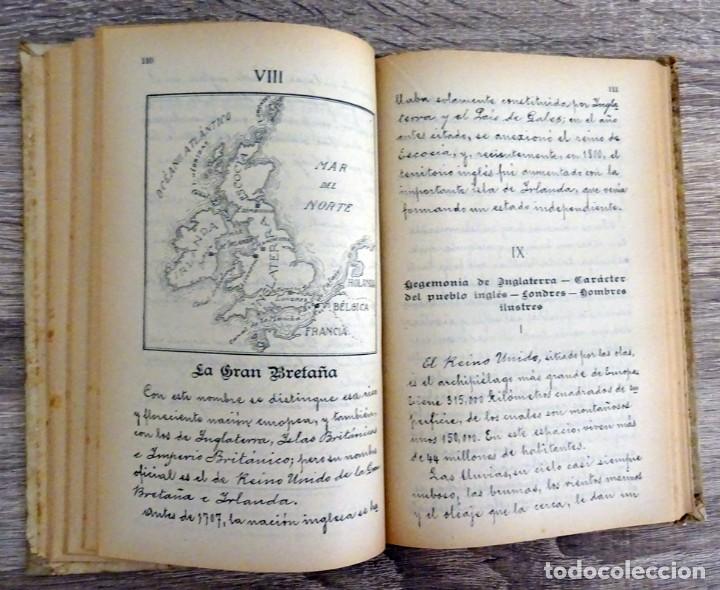 110
VIII
OCÉANO ATLÁNTICO
MAR
DEL
NORTE
ESCOCIA
IRLANDA
INGLATERRA
HOLANDA
BÉLGICA
FRANCIA
La Gran Bretaña
Con este nombre se distingue esa rica
y floreciente nación europea, y también,
con los de Inglaterra, Islas Británicas
e Imperio Británico; pero su nombre
oficial es el de Reino Unido de la Gran
Bretaña e Irlanda.
Antes de 1707, la nación inglesa es ha
111
llaba solamente constituida por Ingla
terra y el País de Gales; en el año
antes citado, se anexionó el reino de
Escocia, y, recientemente, en 1800, el
territorio inglés fué aumentado con la
importante isla de Irlanda, que venía
formando un estado independiente.
IX
Hegemonía de Inglaterra — Carácter
del pueblo inglés — Londres — Hombres
ilustres
I
El Reino Unido, situado por las olas,
es el archipiélago más grande de Europa.
Tiene 315,000 kilómetros cuadrados de su
perficie, de los cuales son montañosos
unos 150,000. En este espacio, viven más
de 44 millones de habitantes.
Las lluvias, su cielo casi siempre
nuboso, las brumas, los vientos marinos
y el oleaje que la cerca, le dan un
todocoleccion.net